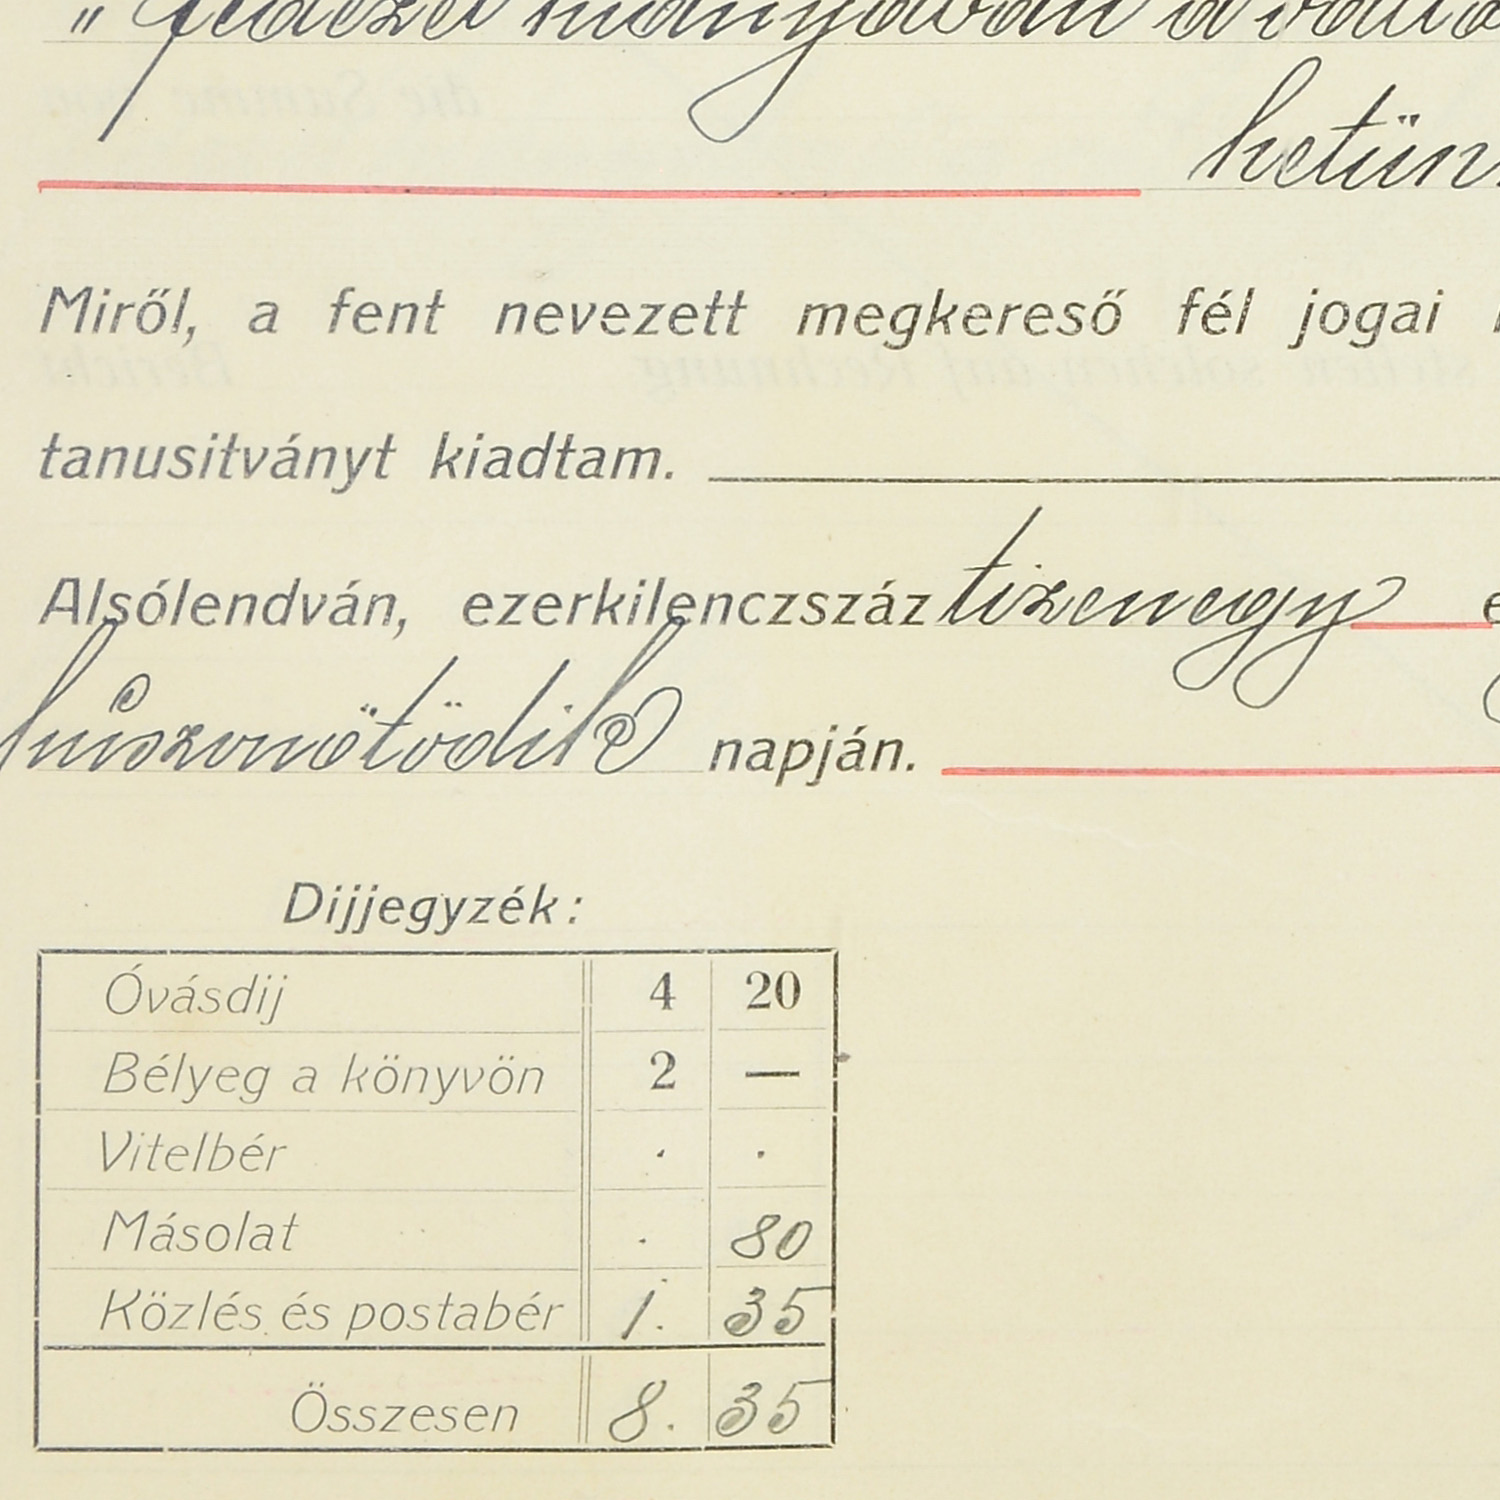 " fedezet hiányában a
hetün
Miről, a fent nevezett megkereső fél jogai
tanusitványt kiadtam.
Alsólendván, ezerkilenczszáz tizenegy
huszonötödik napján.
Dijjegyzék:
Óvásdij 4 20
Bélyeg a könyvön 2 —
Vitelbér . .
Másolat . 80
Közlés és postabér 1. 35
Összesen 8. 35